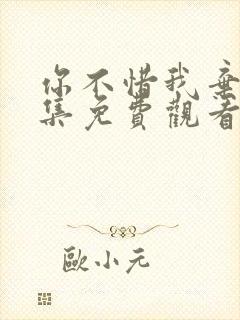 你不惜我棄
集免費觀看
歐小元